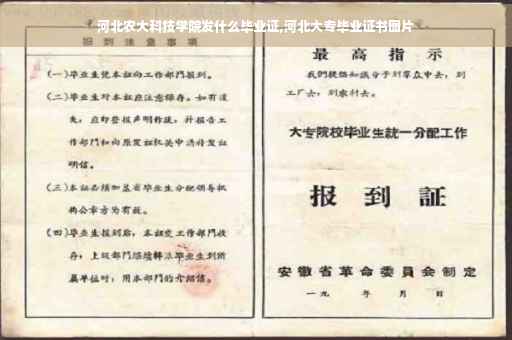 河北农大科技学院发什么毕业证,河北大专毕业证书图片
报到注意事项
(一)毕业生凭本证向工作部门报到。
(二)毕业生对本证应注意保存。如有遗
失,应即登报声明作废,并报告工
作部门和向原发证机关申请补发证
明信。
(三)本证必须加盖省毕业生分配领导机
构公章方为有效。
(四)毕业生报到后,本证交工作部门收
存;上级部门继续转派毕业生到所
属单位时,用本部门的介绍信。
最高指示
我们提倡知识分子到群众中去,到
工厂去,到农村去。
大专院校毕业生統一分配工作
报到証
安徽省革命委員会制定
一九 年 月 日